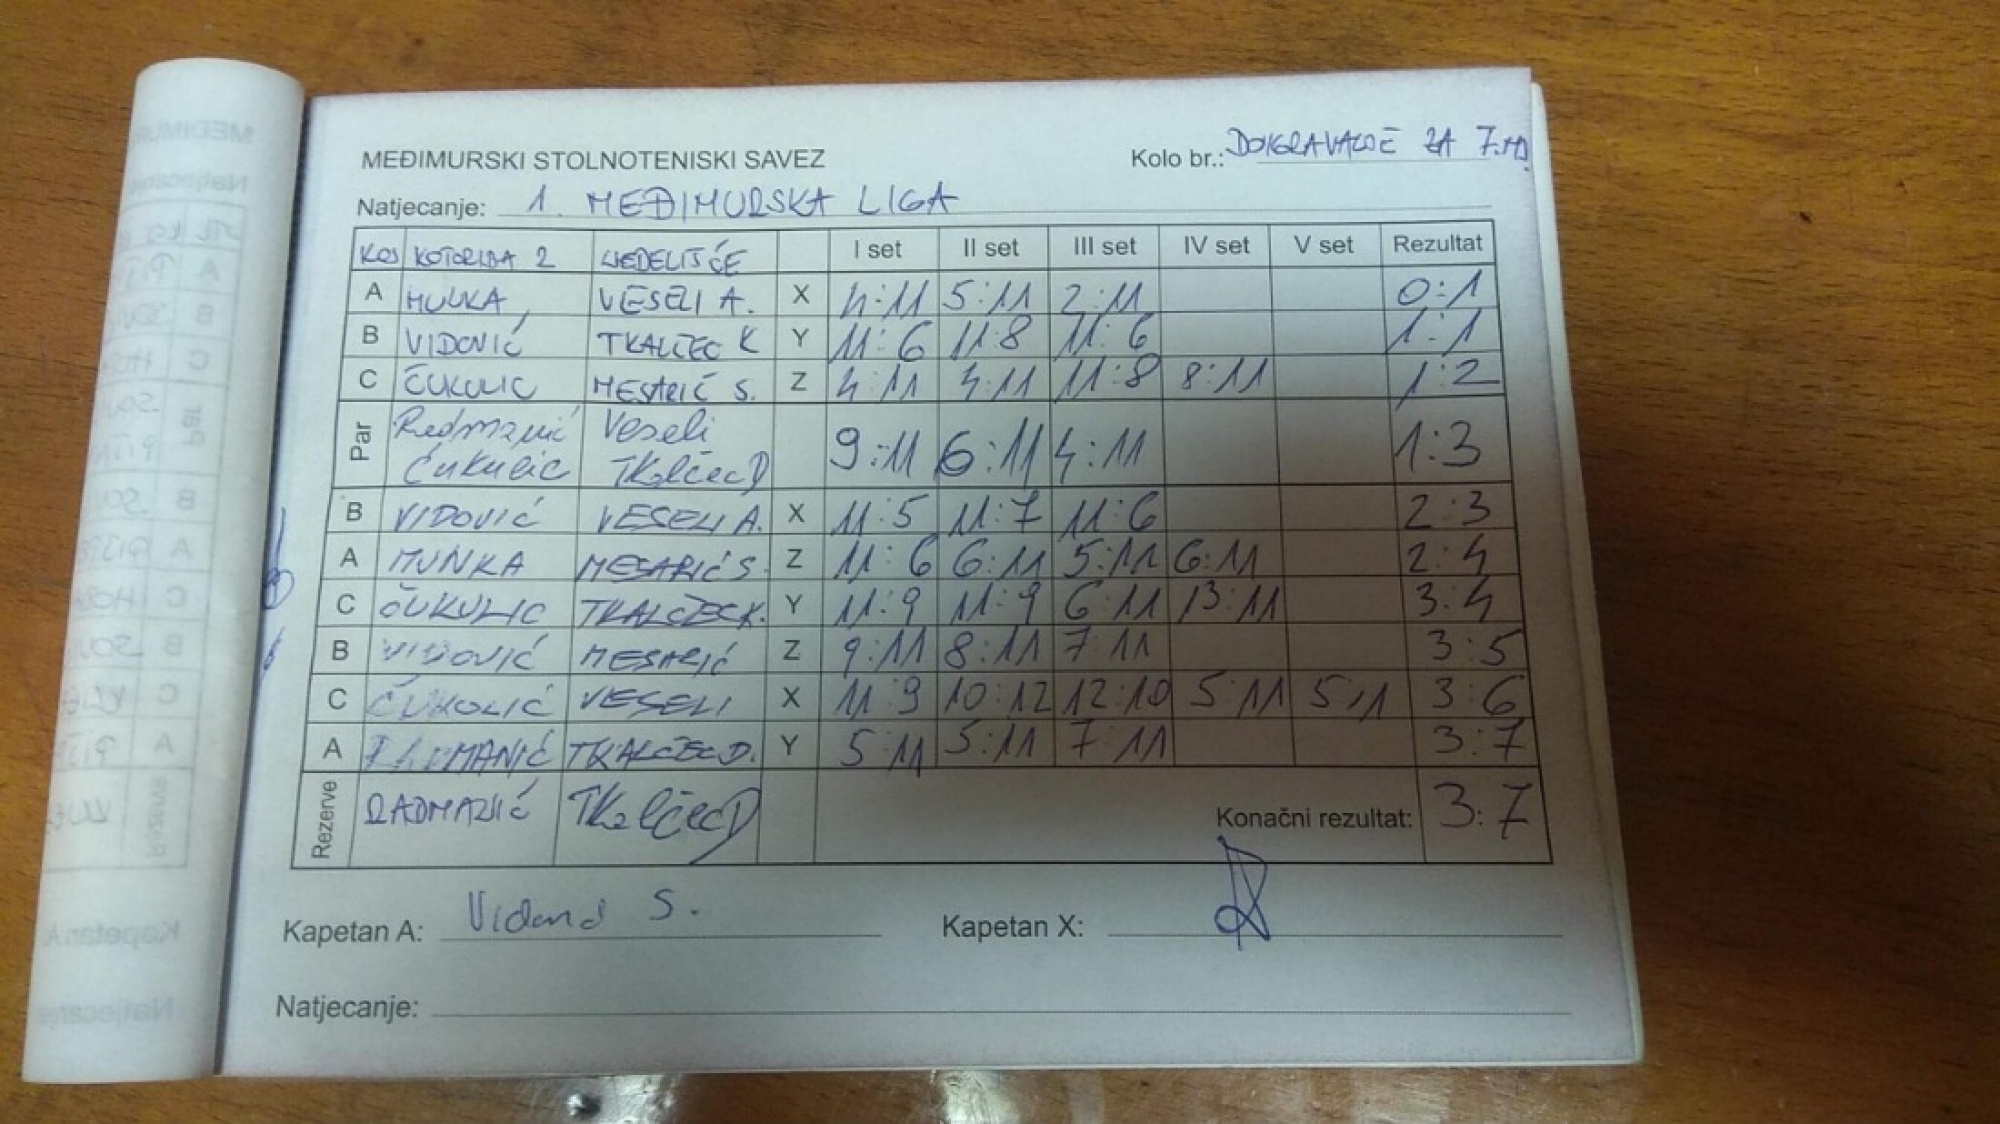 MEĐIMURSKI STOLNOTENISKI SAVEZ
Kolo br.: ZA 7.
Natjecanje: 1. MEĐIMURSKA LIGA
KOS KOTORIBA 2 NEDELIŠĆE I set II set III set IV set V set Rezultat
A MUNKA VESELI A. X 4:11 5:11 2:11 0:1
B VIDOVIĆ TKALČEC K Y 11:6 11:8 11:6 1:1
C ČUKULIC MESARIĆ S. Z 4:11 4:11 11:8 8:11 1:2
Par Redmanić Veseli 9:11 6:11 4:11 1:3
Čukulic TKalčec D
B VIDOVIĆ VESELI A. X 11:5 11:7 11:6 2:3
A MUNKA MESARIĆ S. Z 11:6 6:11 5:11 6:11 2:4
C ČUKULIC TKALČEC K. Y 11:9 11:9 6:11 13:11 3:4
B VIDOVIĆ MESARIĆ Z 9:11 8:11 7 11 3:5
C ČUKOLIĆ VESELI X 11:9 10:12 12:10 5:11 3:6
A TKALČEC D. Y 5:11 5:11 7 11 3:7
Rezerve RADMANIĆ TKalčec D Konačni rezultat: 3:7
Kapetan A: S. Kapetan X:
Natjecanje: